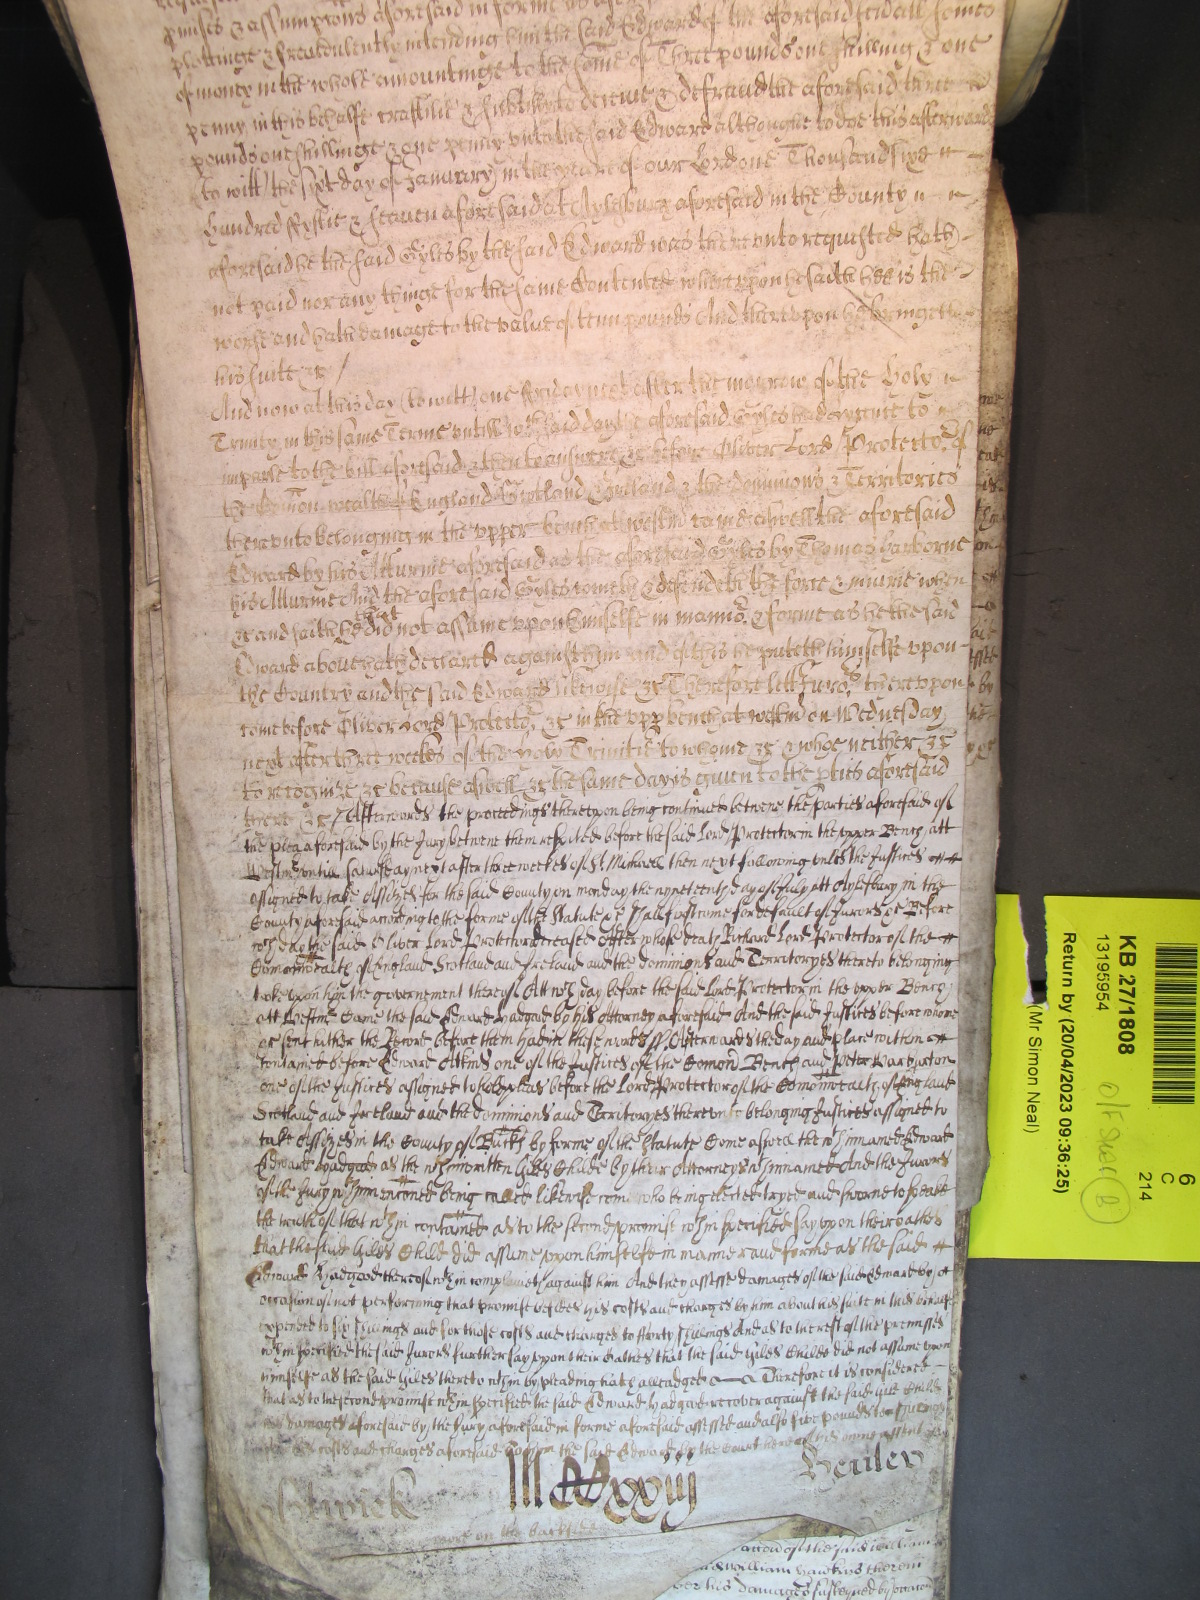 pmises & assumptions aforesaid in forme
plottinge & fraudulently intending him the said Edward of the aforesaid severall somes
of money in the whole amountinge to the some of Three pounds one shilling & one
penny in this behalfe craftilie & subtilly to deceive & defraud the aforesaid three
pounds one shillinge & one penny unto the said Edward althoughe to doe this afterwards
(to witt) the sixt day of January in the yeare of our Lord one Thousand sixe
hundred fyftie & seaven aforesaid at Aylesbury aforesaid in the County
aforesaid he the said Gyles by the said Edward was thereunto requested hath
not paid nor any thinge for the same Contented whereuppon he saith hee is the
worse and hath damage to the value of tenn pounds And thereupon he bringeth
his suite &c /
And now at this day (to witt) one fryday next after the morrow of the Holy
Trinity in this same Terme untill wch said day the aforesaid Gyles had lycence to
imparle to the bill aforesaid & then to answere &c before Oliver Lord Protector of
the Comon wealth of England Scotland & Ireland & the dominions & Territories
thereunto belonging in the upper bench at westm came aswell the aforesaid
Edward by his Atturnie aforesaid as the aforesaid Gyles by Thomas Harborne
his Atturnie And the aforesaid Gyles cometh & defendeth the force & iniurie when
&c and saith he did not assume upon himselfe in manner & forme as he the said
Edward above hath declared against him and of this he putteth himselfe upon
the Country and the said Edward likewise &c Therefore lett Jurors thereupon
come before Oliver Lord Protector &c in the upp bench at westm on Wednesday
next after three weekes of the holy Trinitie to whome &c & whoe neither &c
to recognize &c because aswell &c the same day is given to the pties aforesaid
there &c / Afterwards the proceedings thereupon being continued betwene the parties aforesaid of
the plea aforesaid by the Jury betwene them respited before the said Lord Protector in the upper Bench att
Westm untill saturday next after three weekes of St Michaell then next following unles the Justices
assigned to take Assizes for the said County on monday the nyneteenth day of July att Aylesbury in the
County aforesaid according to the forme of the Statute &c shall first come for default of Jurors &c Before
wch day the said Oliver Lord Protector deceased After whose death Richard Lord Protector of the
Comonwealth of England Scotland and Ireland and the dominions and Territoryes thereto belonging
tooke upon him the governement thereof Att wch day before the said Lord Protector in the upper Bench
att Westm Came the said Edward Hadgood by his Attorney aforesaid And the said Justices before whome
&c sent hither the Record before them had in these words ss Afterwards the day and place within
contained before Edward Atkins one of the Justices of the Comon Bench and Peter Warburton
one of the Justices assigned to hold pleas before the Lord Protector of the Comonwealth of England
Scotland and Ireland and the dominions and Territoryes thereunto belonging Justices assigned to
take Assizes in the County of Bucks by forme of the statute Come aswell the within named Edward
Edward Hadgood as the within written Giles Childe by their Attorneys within named And the Jurors
of the Jury within menconed being called likewise come who being elected tryed and sworne to speake
the truth of that within contained as to the second promise within specified say upon their oathes
that the said Giles Child did assume upon himselfe in manner and forme as the said
Edward Hadgood thereof within complaineth against him And they assesse damages of the said Edward by
occasion of not performing that promise besides his costs and charges by him about his suite in this behalfe
expended to six shillings and for those costs and charges to fforty shillings And as to the rest of the premisses
within specified the said Jurors further say upon their Oathes that the said Giles Childe did not assume upon
himselfe as the said Giles thereto within by pleading hath alleadged Therefore it is considered
that as to the second promise within specified the said Edward Hadgood recover against the said Gile Childe
damages aforesaid by the Jury aforesaid in forme aforesaid assessed and also five pounds
costs and charges aforesaid to him the said Edward by the Court here of his owne assent
Henley
KB 27/1808
13195954
Return by (20/04/2023 09:36:25)
(Mr Simon Neal)
6
C
214
accon of the said william
said william Hawkins therein
ver his damages susteyned by occacon